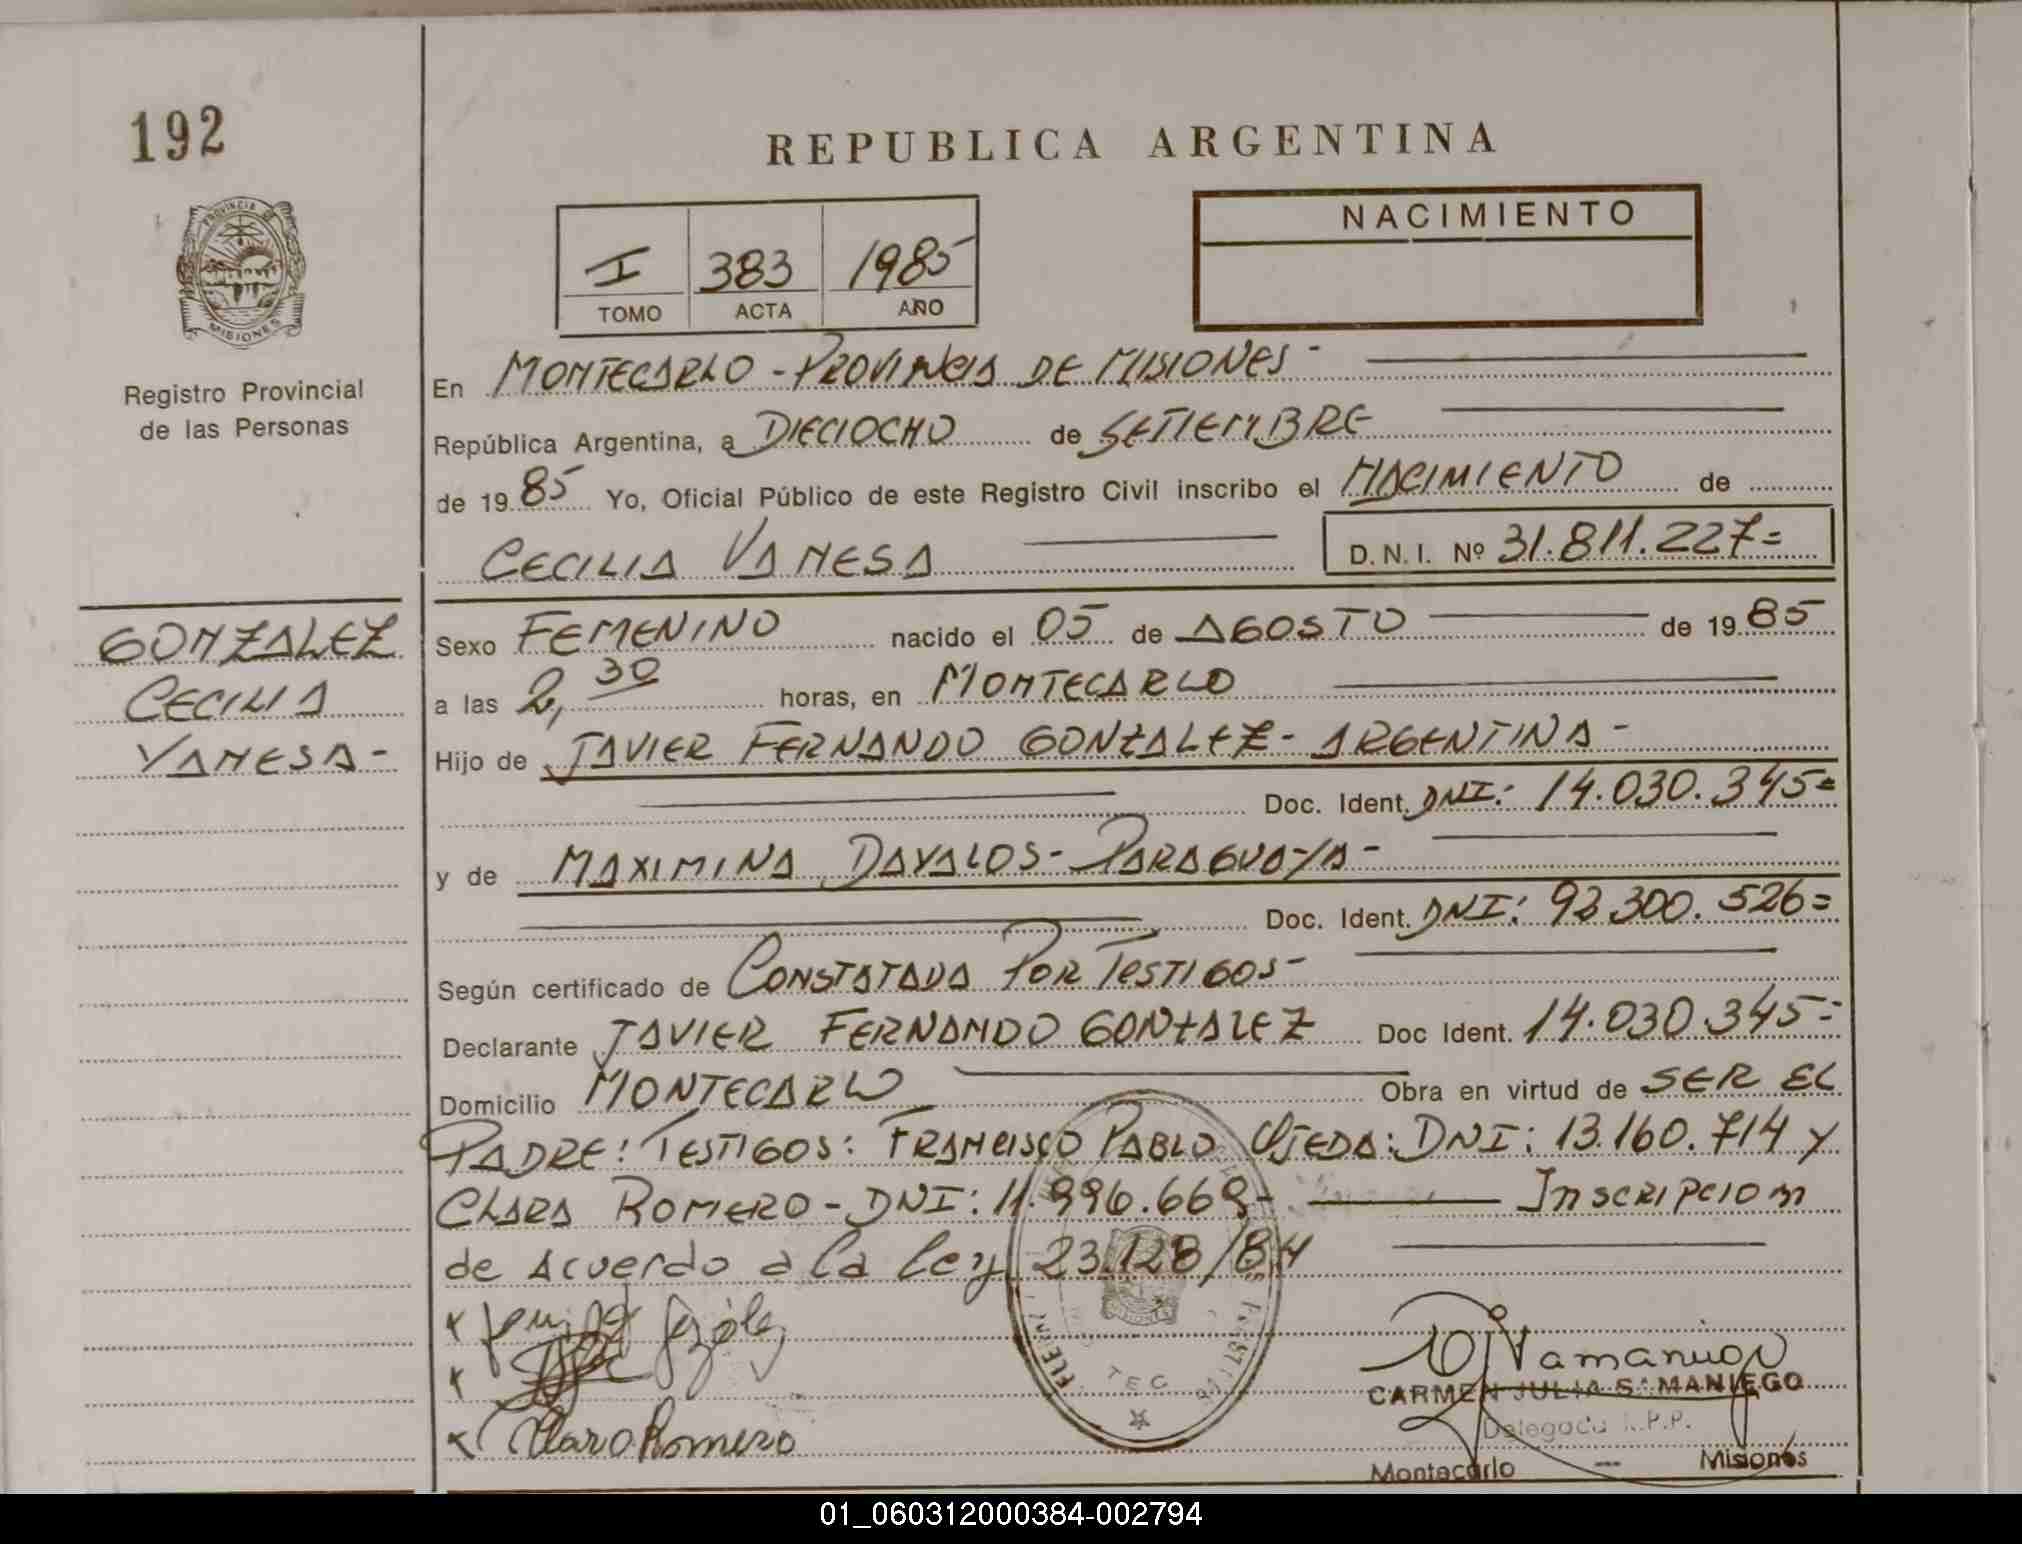 192
REPUBLICA ARGENTINA
NACIMIENTO
I 383 1985
TOMO ACTA AÑO
PROVINCIA DE
MISIONES
Registro Provincial
de las Personas
En MONTECARLO - PROVINCIA DE MISIONES -
República Argentina, a DIECIOCHO de SETIEMBRE
de 19 85 Yo, Oficial Público de este Registro Civil inscribo el NACIMIENTO de
CECILIA VANESA D.N.I. Nº 31.811.227=
GONZALEZ
CECILIA
VANESA-
Sexo FEMENINO nacido el 05 de AGOSTO de 19 85
a las 2,30 horas, en MONTECARLO
Hijo de JAVIER FERNANDO GONZALEZ - ARGENTINA -
Doc. Ident. DNI: 14.030.345=
y de MAXIMINA DAVALOS - PARAGUAYA -
Doc. Ident. DNI: 92.300.526=
Según certificado de CONSTATADA POR TESTIGOS-
Declarante JAVIER FERNANDO GONZALEZ Doc Ident. 14.030.345=
Domicilio MONTECARLO Obra en virtud de SER EL
PADRE: TESTIGOS: FRANCISCO PABLO OJEDA: DNI: 13.160.714 y
CLARA ROMERO - DNI: 11.996.669- INSCRIPCION
de acuerdo a la ley 23.128/84
x
x
x Clara Romero
CARMEN JULIA SAMANIEGO
Delegada R.P.P.
Montecarlo — Misiones
01_060312000384-002794